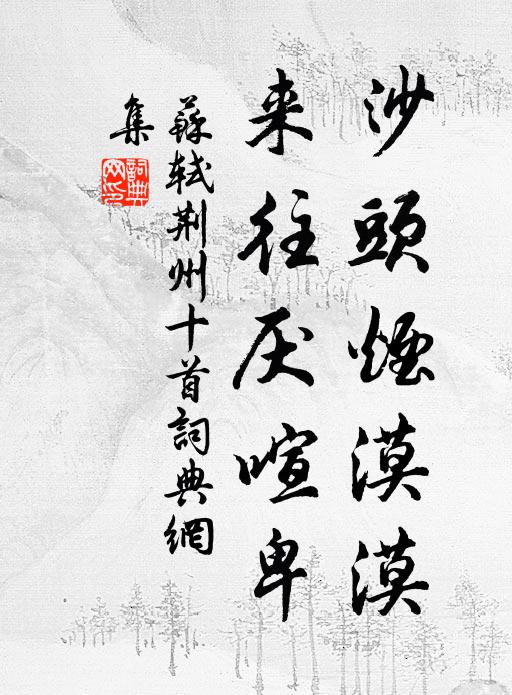 沙頭煙漠漠
来往厌喧卑
蘇軾荆州十首詞典網
集
詞典網